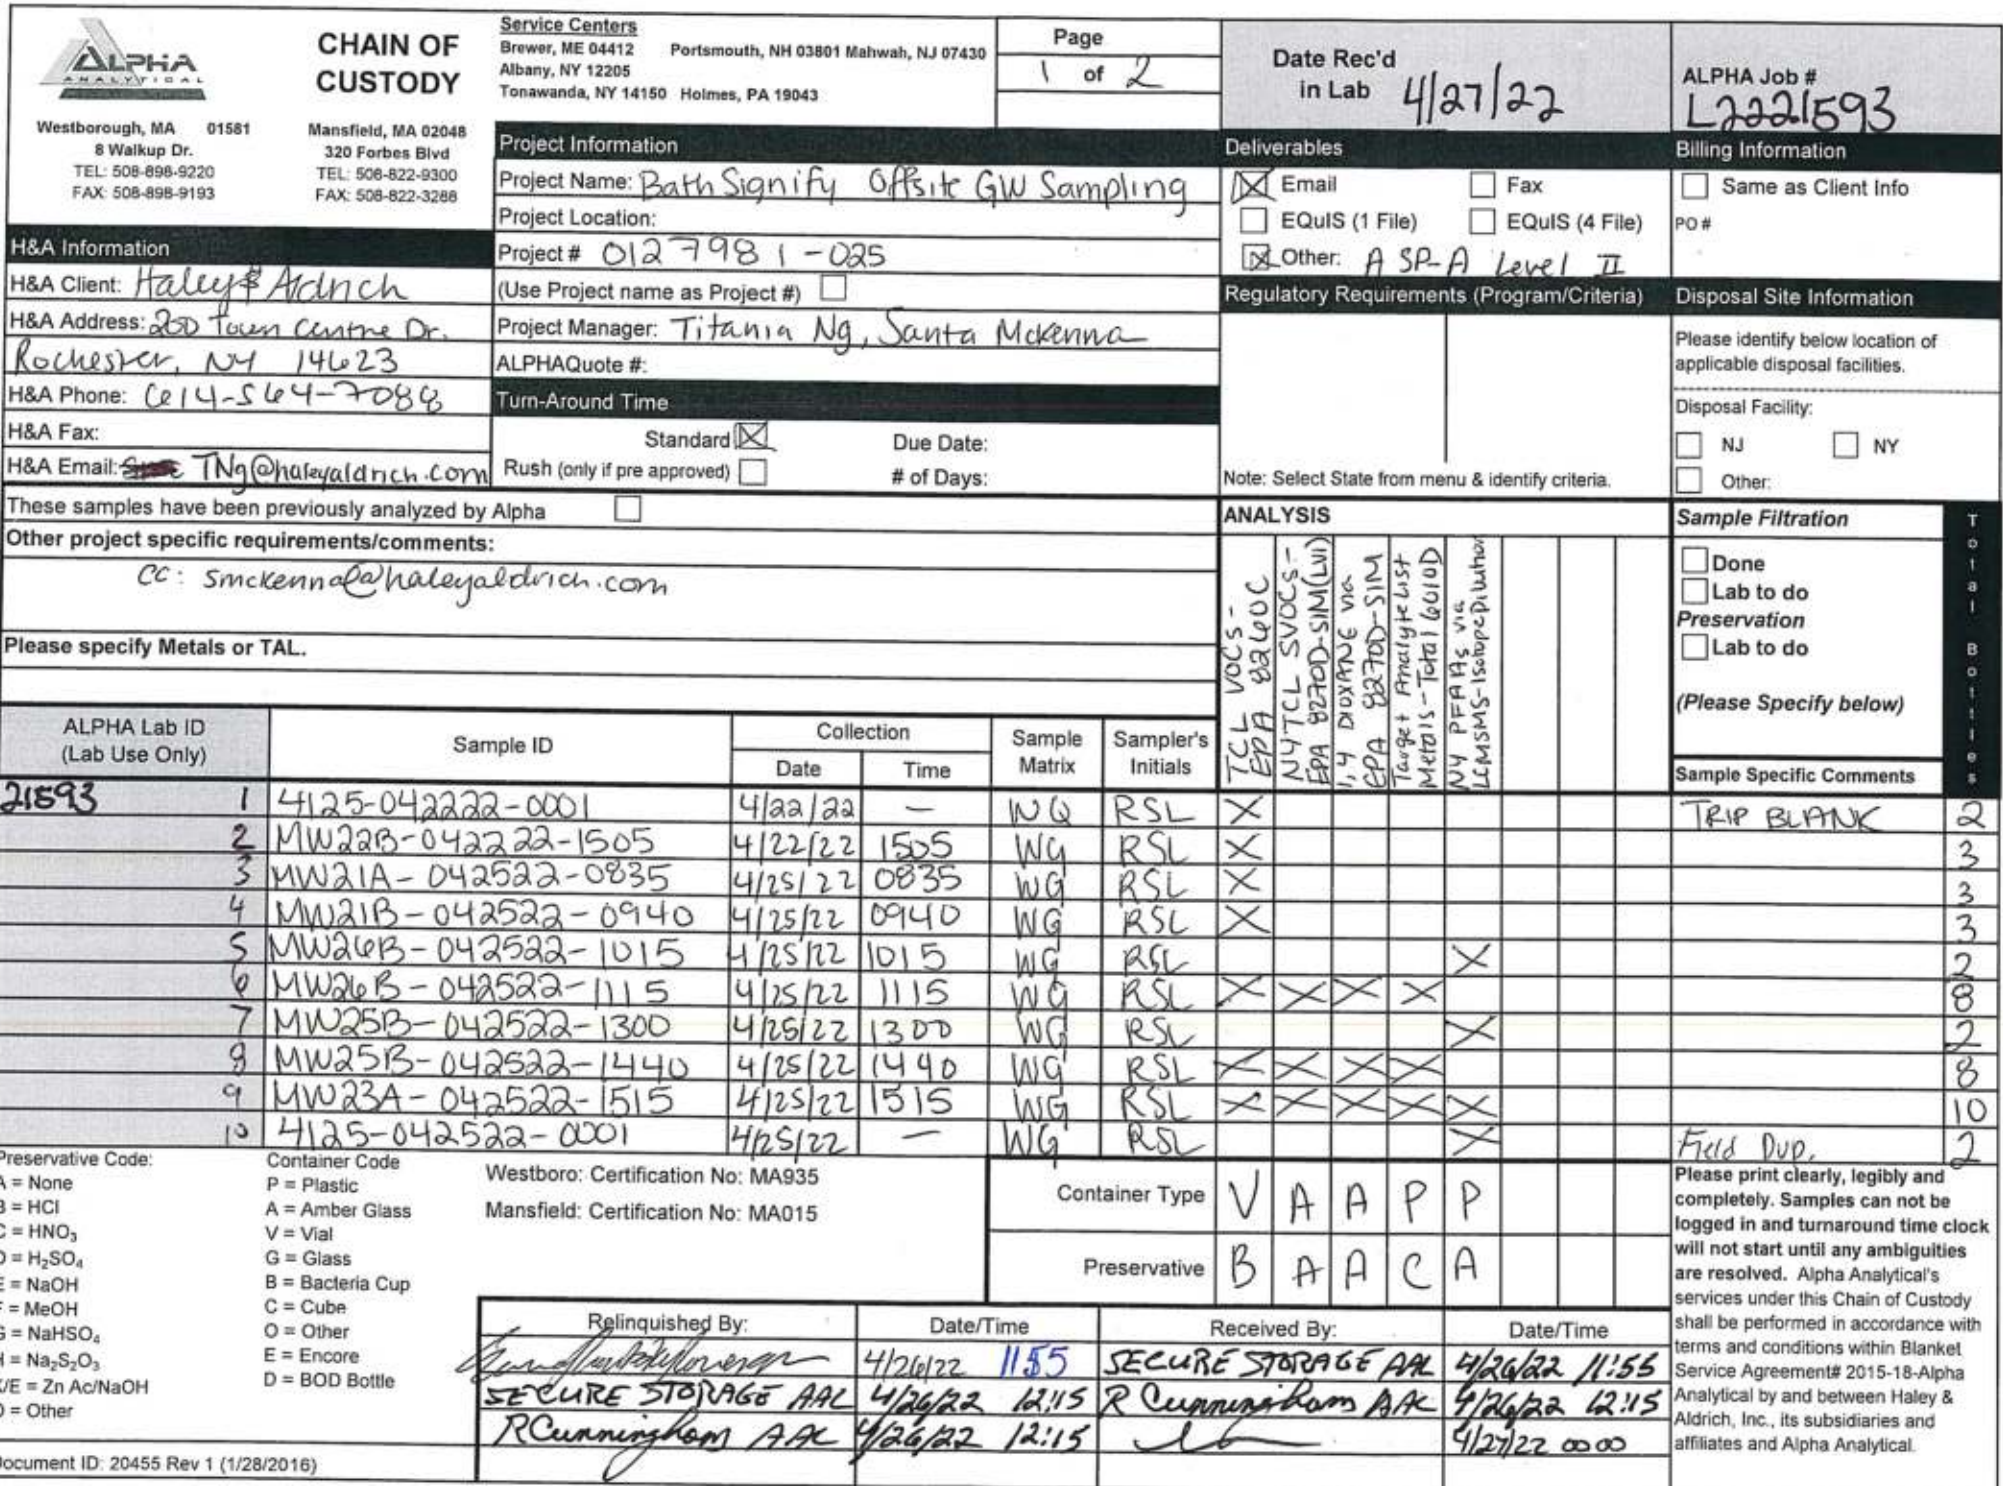 ALPHA
ANALYTICAL
CHAIN OF
CUSTODY
Westborough, MA 01581
8 Walkup Dr.
TEL: 508-898-9220
FAX: 508-898-9193
Mansfield, MA 02048
320 Forbes Blvd
TEL: 508-822-9300
FAX: 508-822-3288
Service Centers
Brewer, ME 04412 Portsmouth, NH 03801 Mahwah, NJ 07430
Albany, NY 12205
Tonawanda, NY 14150 Holmes, PA 19043
Page
1 of 2
Date Rec'd
in Lab 4/27/22
ALPHA Job #
L2221593
H&A Information
H&A Client: Haley & Aldrich
H&A Address: 200 Town Centre Dr.
Rochester, NY 14623
H&A Phone: 614-564-7088
H&A Fax:
H&A Email: TNg@haleyaldrich.com
Project Information
Project Name: Bath Signify Offsite GW Sampling
Project Location:
Project # 0127981-025
(Use Project name as Project #)
Project Manager: Titania Ng, Santa McKenna
ALPHAQuote #:
Turn-Around Time
Standard X Due Date:
Rush (only if pre approved) # of Days:
Deliverables
X Email Fax
EQuIS (1 File) EQuIS (4 File)
X Other: ASP-A Level II
Regulatory Requirements (Program/Criteria)
Note: Select State from menu & identify criteria.
Billing Information
Same as Client Info
PO #
Disposal Site Information
Please identify below location of
applicable disposal facilities.
Disposal Facility:
NJ NY
Other:
These samples have been previously analyzed by Alpha
Other project specific requirements/comments:
CC: smckenna@haleyaldrich.com
Please specify Metals or TAL.
ANALYSIS
TCL VOCs -
EPA 8260C
NYTCL SVOCs -
EPA 8270D-SIM (LVI)
1,4 DIOXANE via
EPA 8270D-SIM
Target Analyte List
Metals - Total 6010D
NY PFAAs via
LCMSMS-Isotope Dilution
Sample Filtration
Done
Lab to do
Preservation
Lab to do
(Please Specify below)
Total Bottles
ALPHA Lab ID
(Lab Use Only)
Sample ID
Collection
Date Time
Sample
Matrix
Sampler's
Initials
Sample Specific Comments
21593 1 4125-042222-0001 4/22/22 — WQ RSL X TRIP BLANK 2
2 MW22B-042222-1505 4/22/22 1505 WG RSL X 3
3 MW21A-042522-0835 4/25/22 0835 WG RSL X 3
4 MW21B-042522-0940 4/25/22 0940 WG RSL X 3
5 MW26B-042522-1015 4/25/22 1015 WG RSL X 2
6 MW26B-042522-1115 4/25/22 1115 WG RSL X X X X 8
7 MW25B-042522-1300 4/25/22 1300 WG RSL X 2
8 MW25B-042522-1440 4/25/22 1440 WG RSL X X X X 8
9 MW23A-042522-1515 4/25/22 1515 WG RSL X X X X X 10
10 4125-042522-0001 4/25/22 — WG RSL X Field Dup. 2
Preservative Code:
A = None
B = HCl
C = HNO₃
D = H₂SO₄
E = NaOH
F = MeOH
G = NaHSO₄
H = Na₂S₂O₃
K/E = Zn Ac/NaOH
O = Other
Container Code
P = Plastic
A = Amber Glass
V = Vial
G = Glass
B = Bacteria Cup
C = Cube
O = Other
E = Encore
D = BOD Bottle
Westboro: Certification No: MA935
Mansfield: Certification No: MA015
Container Type V A A P P
Preservative B A A C A
Relinquished By: Date/Time Received By: Date/Time
4/26/22 1155 SECURE STORAGE AAL 4/26/22 11:55
SECURE STORAGE AAL 4/26/22 12:15 R Cunningham AAL 4/26/22 12:15
R Cunningham AAL 4/26/22 12:15 4/27/22 0000
Please print clearly, legibly and
completely. Samples can not be
logged in and turnaround time clock
will not start until any ambiguities
are resolved. Alpha Analytical's
services under this Chain of Custody
shall be performed in accordance with
terms and conditions within Blanket
Service Agreement# 2015-18-Alpha
Analytical by and between Haley &
Aldrich, Inc., its subsidiaries and
affiliates and Alpha Analytical.
Document ID: 20455 Rev 1 (1/28/2016)